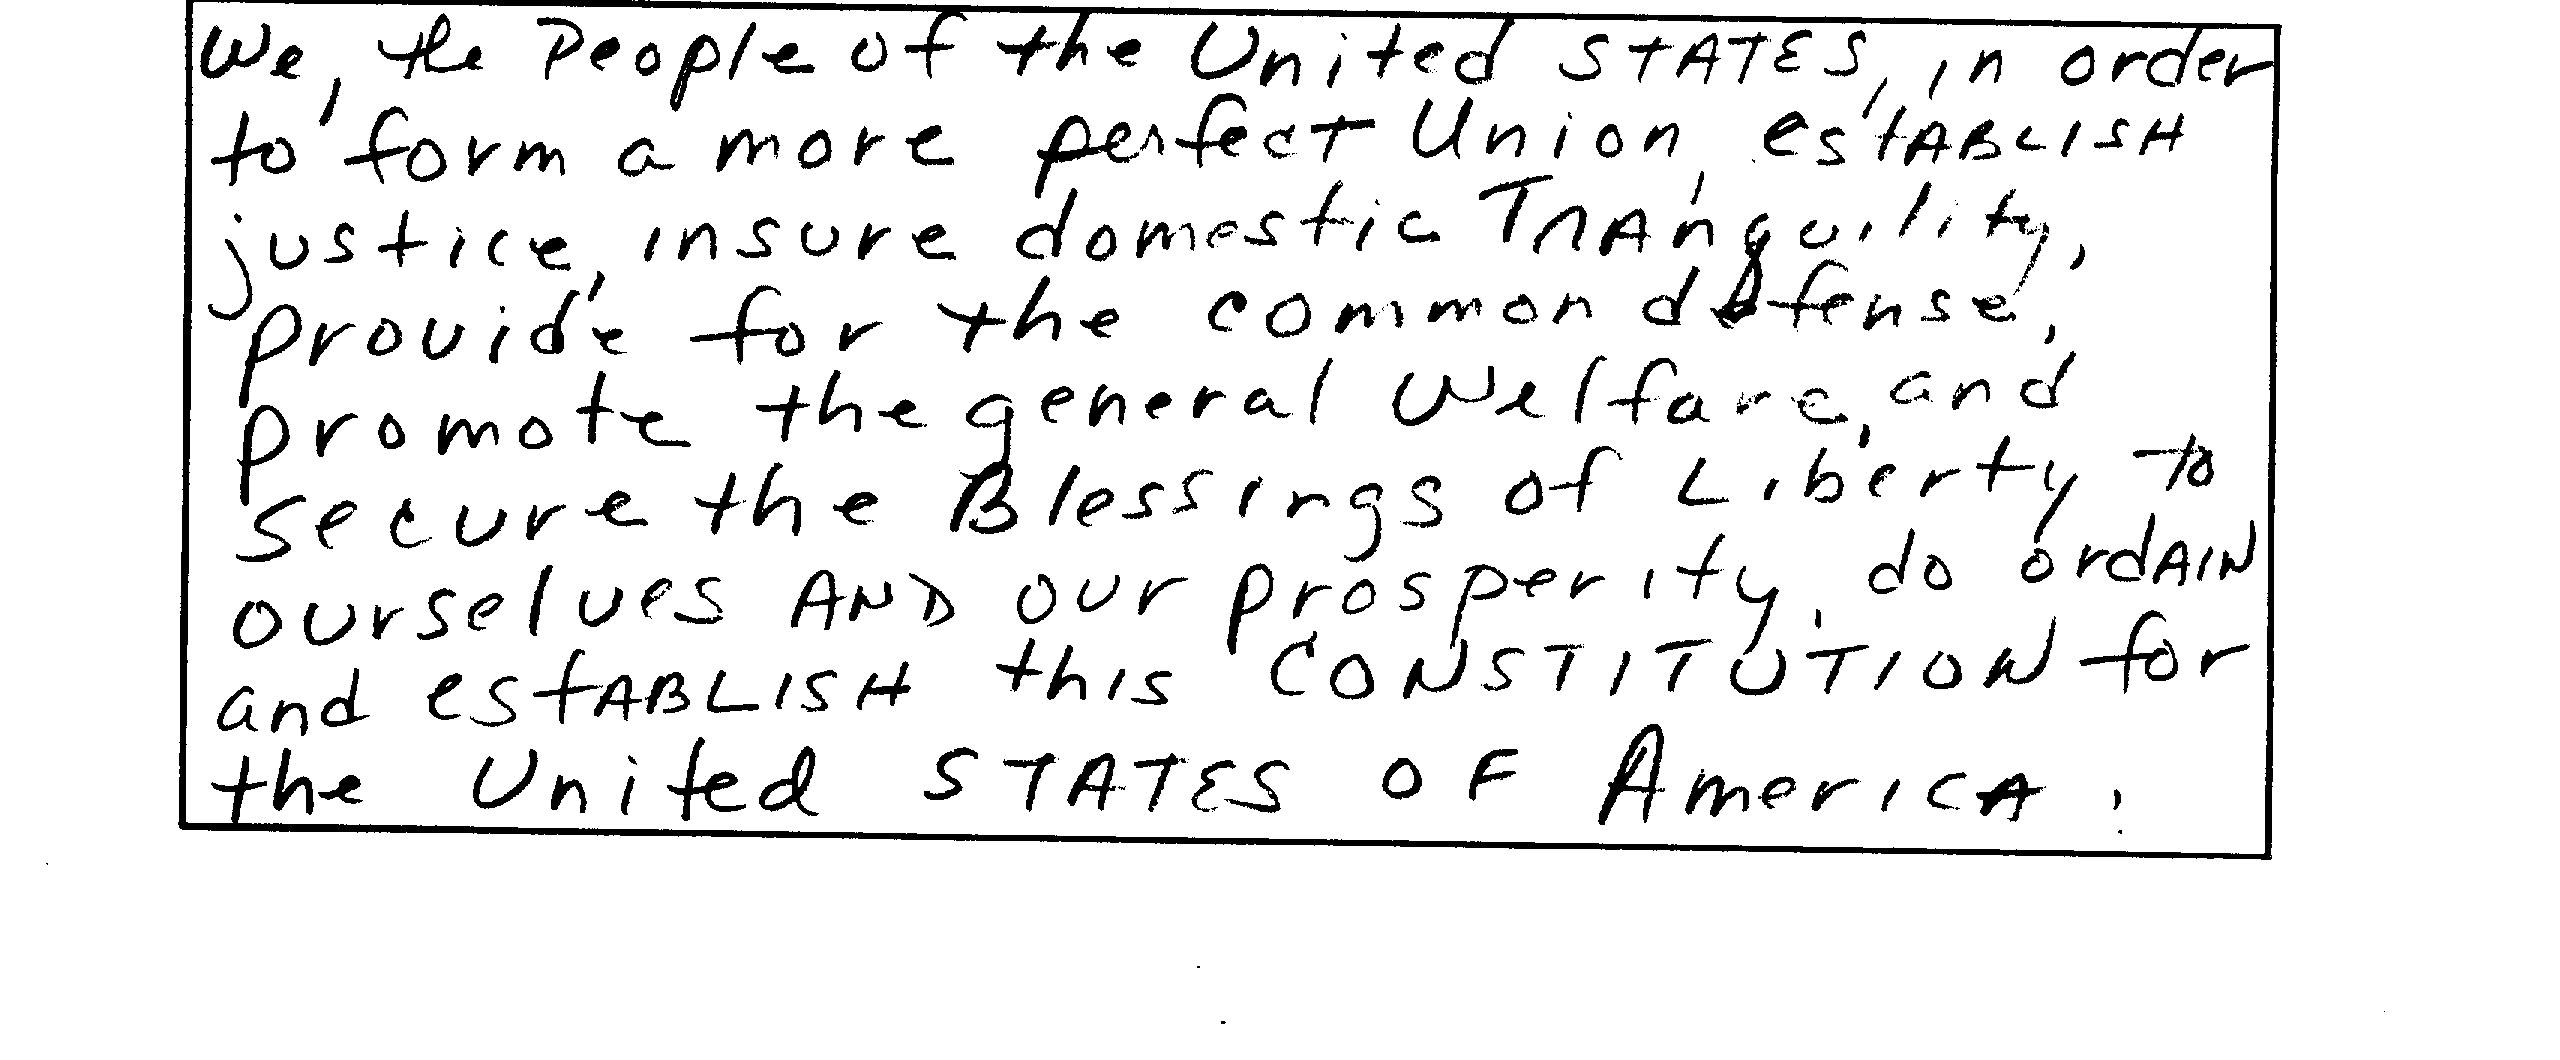 We, the People of the United STATES, in order
to form a more perfect Union, estABLISH
justice, insure domestic TRAnquility,
provide for the common defense,
promote the general Welfare, and
secure the Blessings of Liberty to
ourselves AND our prosperity, do ordAIN
and estABLISH this CONSTITUTION for
the United STATES OF AmericA.